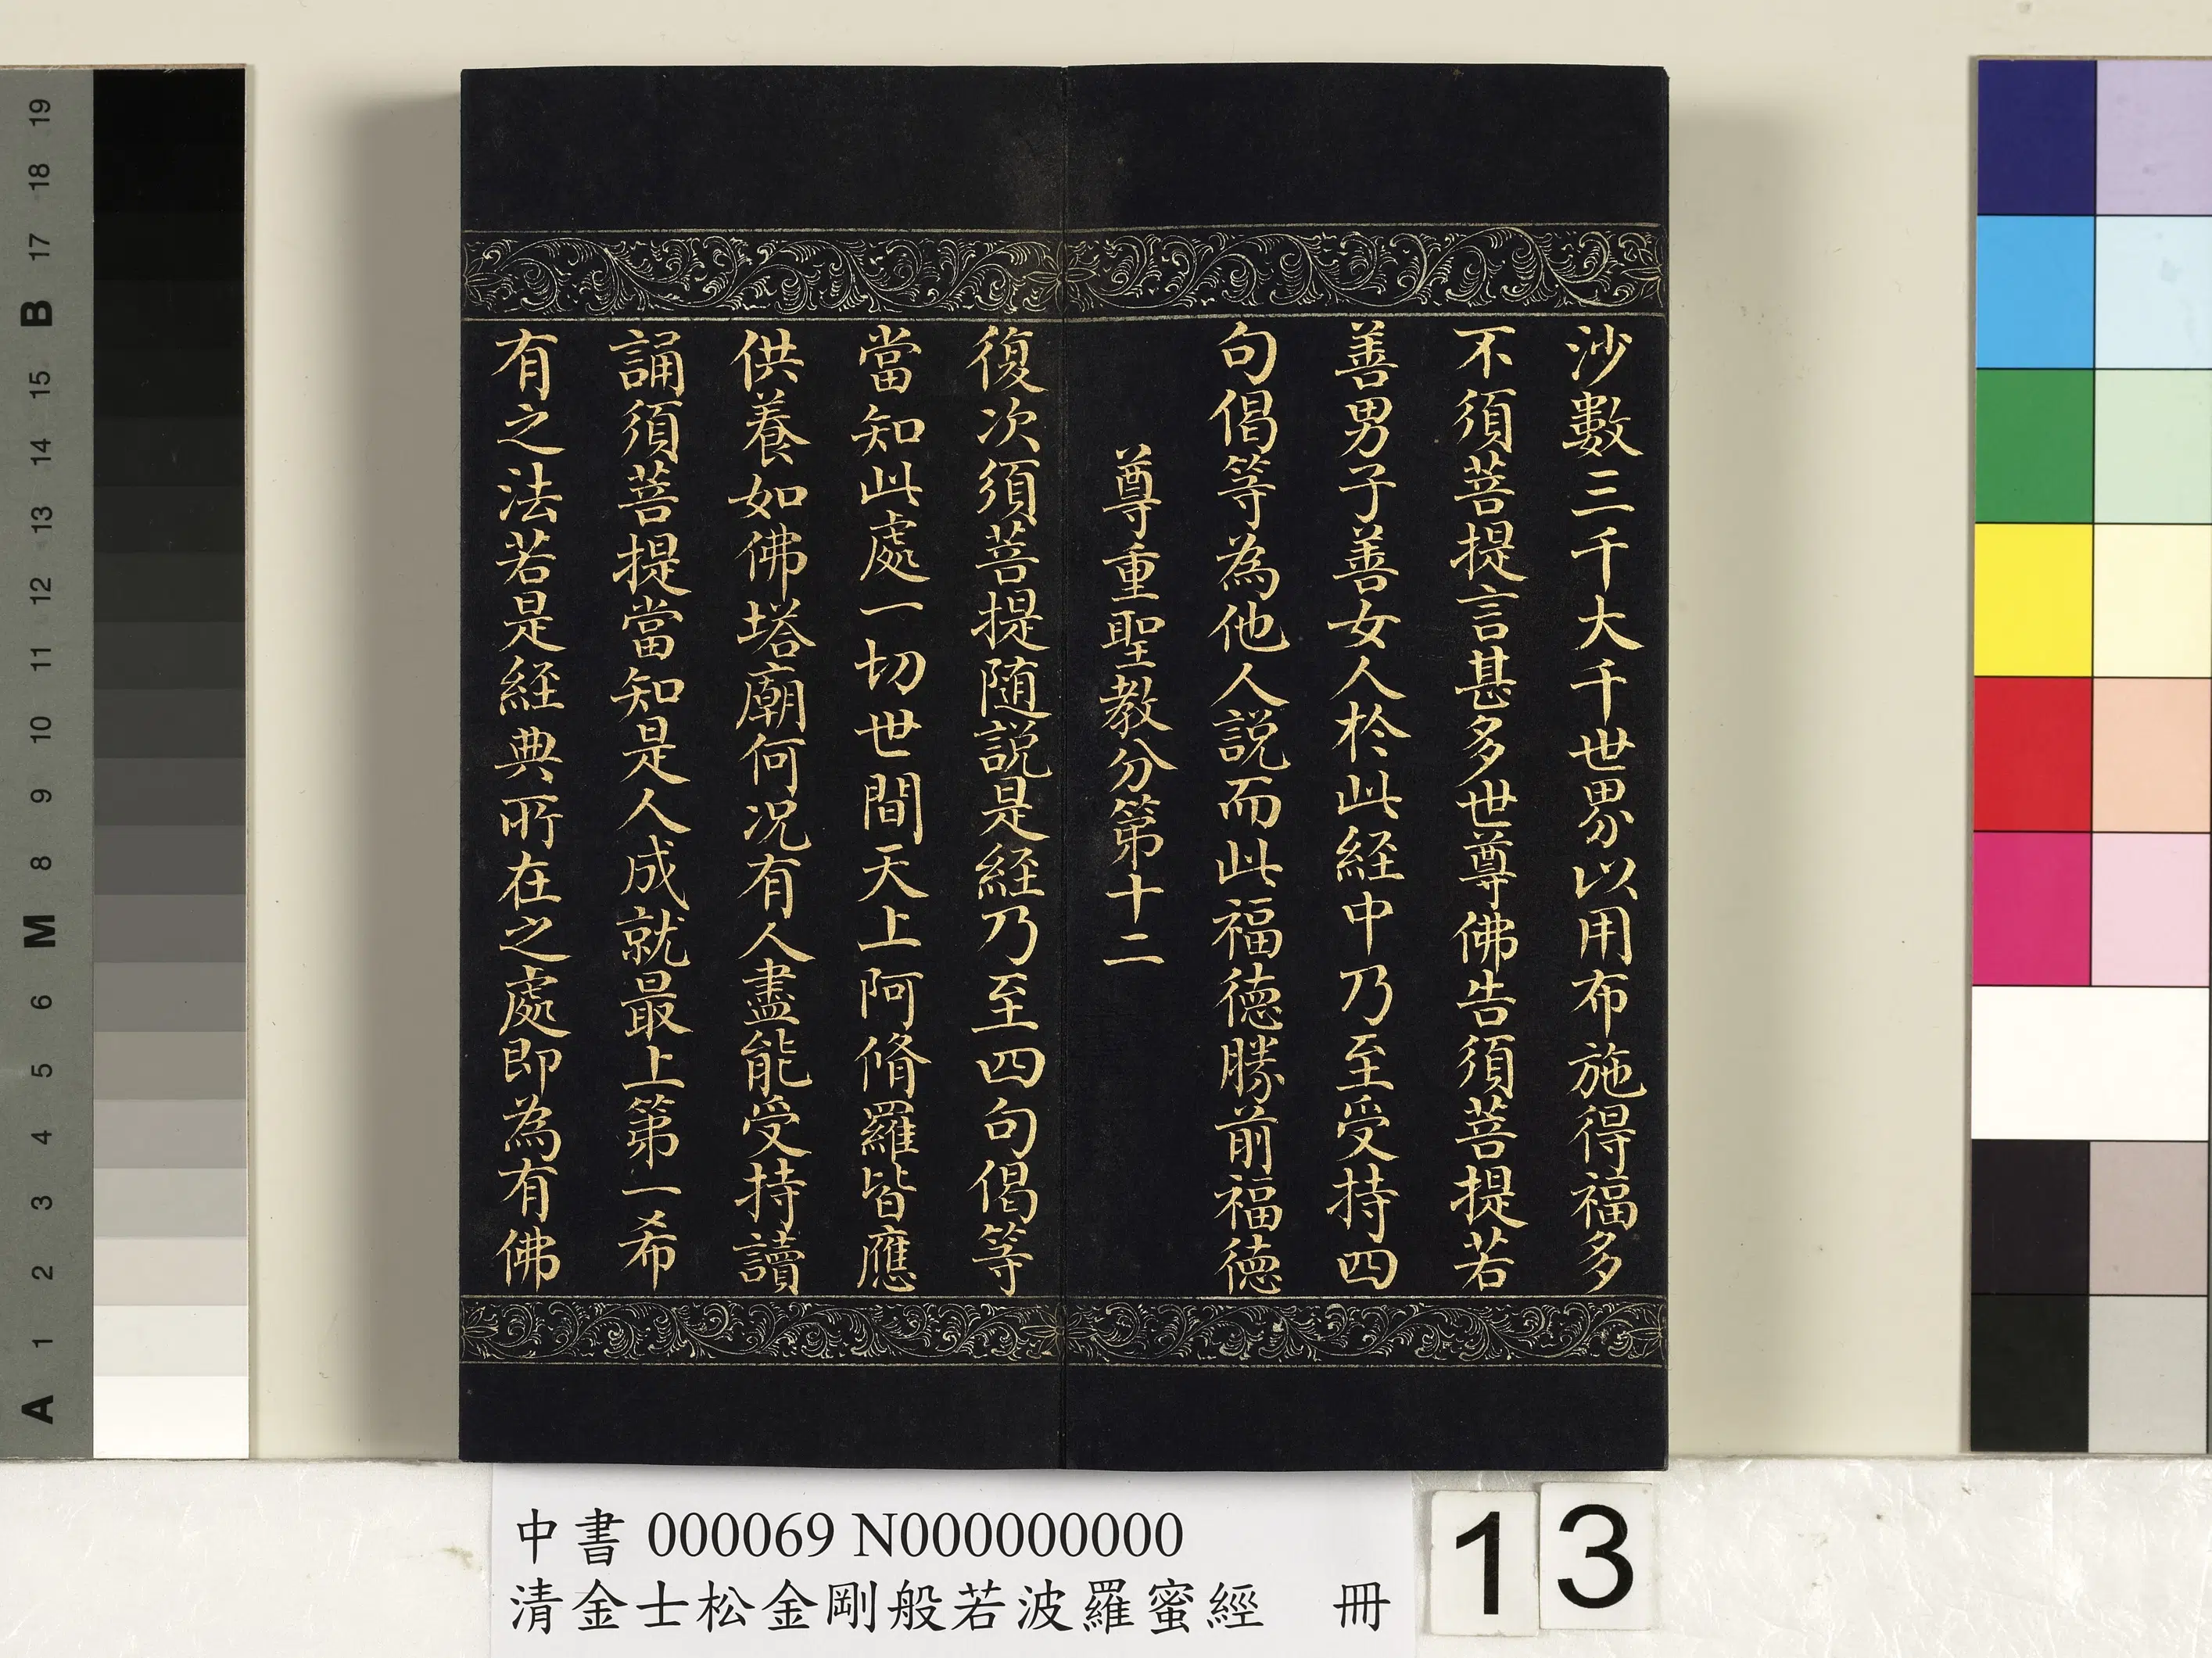 沙數三千大千世界以用布施得福多
不須菩提言甚多世尊佛告須菩提若
善男子善女人於此経中乃至受持四
句偈等為他人說而此福德勝前福德
尊重聖教分第十二
復次須菩提随說是経乃至四句偈等
當知此處一切世間天上阿脩羅皆應
供養如佛塔廟何況有人盡能受持讀
誦須菩提當知是人成就最上第一希
有之法若是経典所在之處即為有佛
中書 000069 N000000000
清金士松金剛般若波羅蜜經 冊
13
19
18
17
B
15
14
13
12
11
10
9
8
M
6
5
4
3
2
1
A